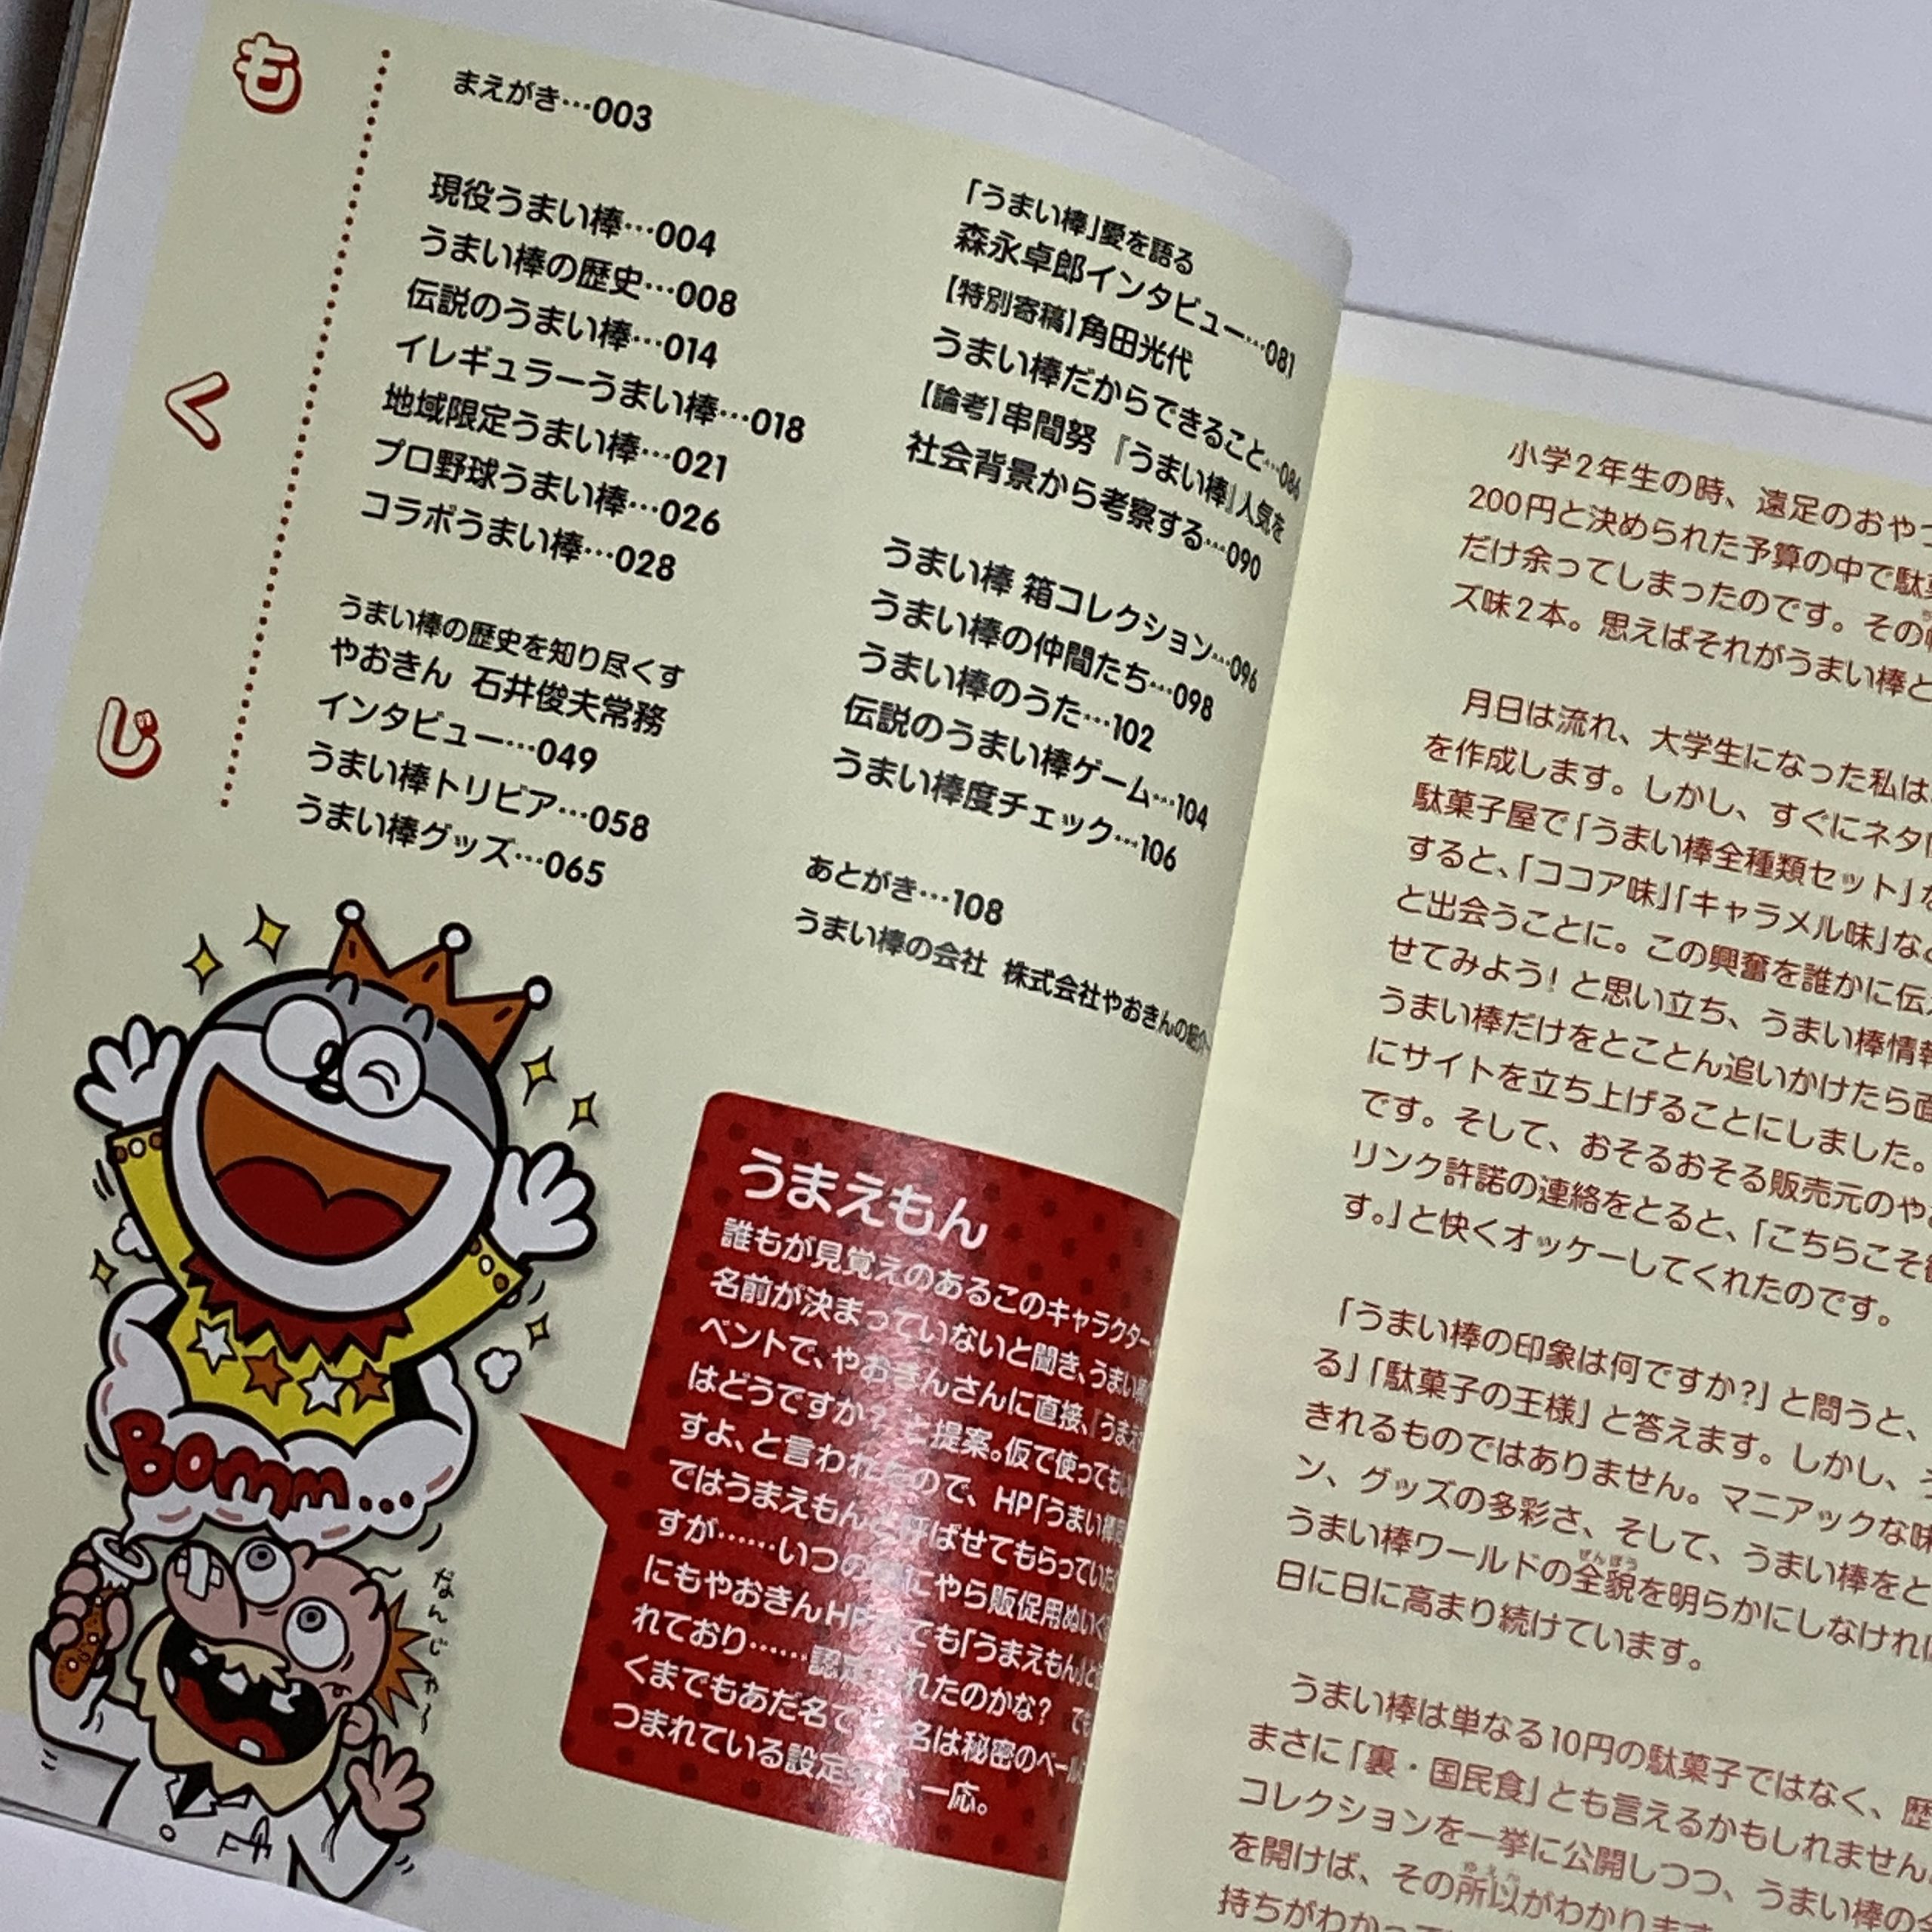 もくじ
まえがき…003
現役うまい棒…004
うまい棒の歴史…008
伝説のうまい棒…014
イレギュラーうまい棒…018
地域限定うまい棒…021
プロ野球うまい棒…026
コラボうまい棒…028
うまい棒の歴史を知り尽くす
やおきん 石井俊夫常務
インタビュー…049
うまい棒トリビア…058
うまい棒グッズ…065
「うまい棒」愛を語る
森永卓郎インタビュー…081
【特別寄稿】角田光代
うまい棒だからできること…086
【論考】串間努『うまい棒』人気を
社会背景から考察する…090
うまい棒 箱コレクション…096
うまい棒の仲間たち…098
うまい棒のうた…102
伝説のうまい棒ゲーム…104
うまい棒度チェック…106
あとがき…108
うまい棒の会社 株式会社やおきんの紹介
Bomm...
なんじゃ〜
うまえもん
誰もが見覚えのあるこのキャラクター
名前が決まっていないと聞き、うまい棒
ベントで、やおきんさんに直接、『うまえ
はどうですか? と提案。仮で使っても
すよ、と言われたので、HP「うまい棒
ではうまえもんと呼ばせてもらってい
すが……いつの間にやら販促用ぬいぐ
にもやおきんHP でも「うまえもん」と
れており……認 れたのかな? で
くまでもあだ名で 名は秘密のベール
つまれている設定 一応。
小学2年生の時、遠足のおや
200円と決められた予算の中で駄
だけ余ってしまったのです。その
ズ味2本。思えばそれがうまい棒と
月日は流れ、大学生になった私は
を作成します。しかし、すぐにネタ
駄菓子屋で「うまい棒全種類セット」
すると、「ココア味」「キャラメル味」な
と出会うことに。この興奮を誰かに伝
せてみよう! と思い立ち、うまい棒情
うまい棒だけをとことん追いかけたら
にサイトを立ち上げることにしました。
です。そして、おそるおそる販売元のや
リンク許諾の連絡をとると、「こちらこそ
す。」と快くオッケーしてくれたのです。
「うまい棒の印象は何ですか?」と問うと、
る」「駄菓子の王様」と答えます。しかし、
きれるものではありません。マニアックな味
ン、グッズの多彩さ、そして、うまい棒をと
うまい棒ワールドの全貌(ぜんぼう)を明らかにしなけれ
日に日に高まり続けています。
うまい棒は単なる10円の駄菓子ではなく、歴
まさに「裏・国民食」とも言えるかもしれません
コレクションを一挙に公開しつつ、うまい棒の
を開けば、その所以(ゆえん)がわかります
持ちがわかって